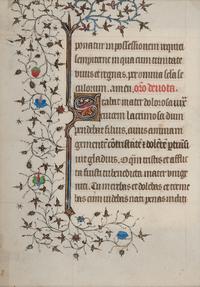 ponatur in possessionem requiei
sempiterne in qua cum unitate
viuis et regnas. per omnia sclā se
culorum. amen. orō deuota.
Stabat mater dolorosa iuxᵃ
crucem lacrimosa dum
pendebat filius. cuius animam
gementē cōtristātē ⁊ dolētē ptrāsi
uit gladius. O qm̄ tristis et afflic
ta fuit illa benedicta mater vnige
niti. Que merebat et dolebat et treme
bat cum videbat nati penas incliti